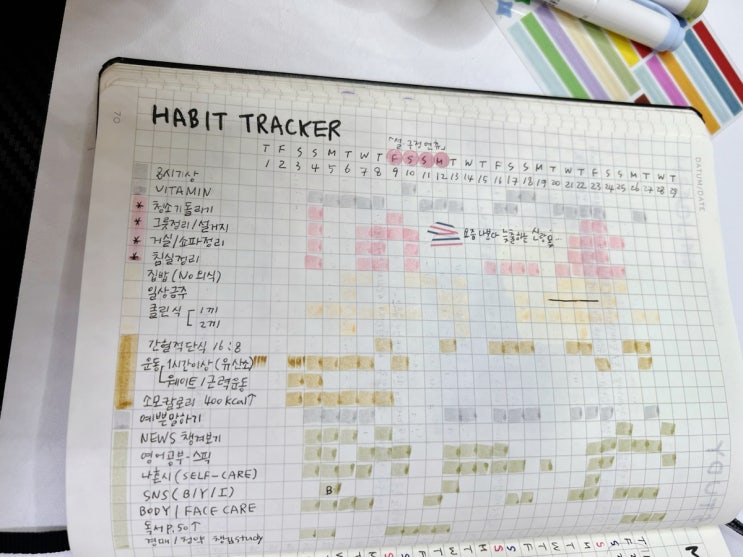 70
HABIT TRACKER
DATUM/DATE
"설 구정연휴"
T F S S M T W T F S S M T W T F S S M T W T F S S M T W T
1 2 3 4 5 6 7 8 9 10 11 12 13 14 15 16 17 18 19 20 21 22 23 24 25 26 27 28 29
8시기상
VITAMIN
청소기돌리기
* 그릇정리/설거지
요즘 나보다
* 거실/쇼파정리
* 침실정리
집밥 (No외식)
일상금주
클린식 1끼
2끼
간헐적단식 16:8
운동 1시간이상 (유산소)
웨이트/근력운동
소모칼로리 400kcal↑
예쁜말하기
NEWS 챙겨보기
영어공부-스픽
나혼시 (SELF-CARE)
SNS (B/Y/I)
B
BODY/FACE CARE
독서 P.50↑
study